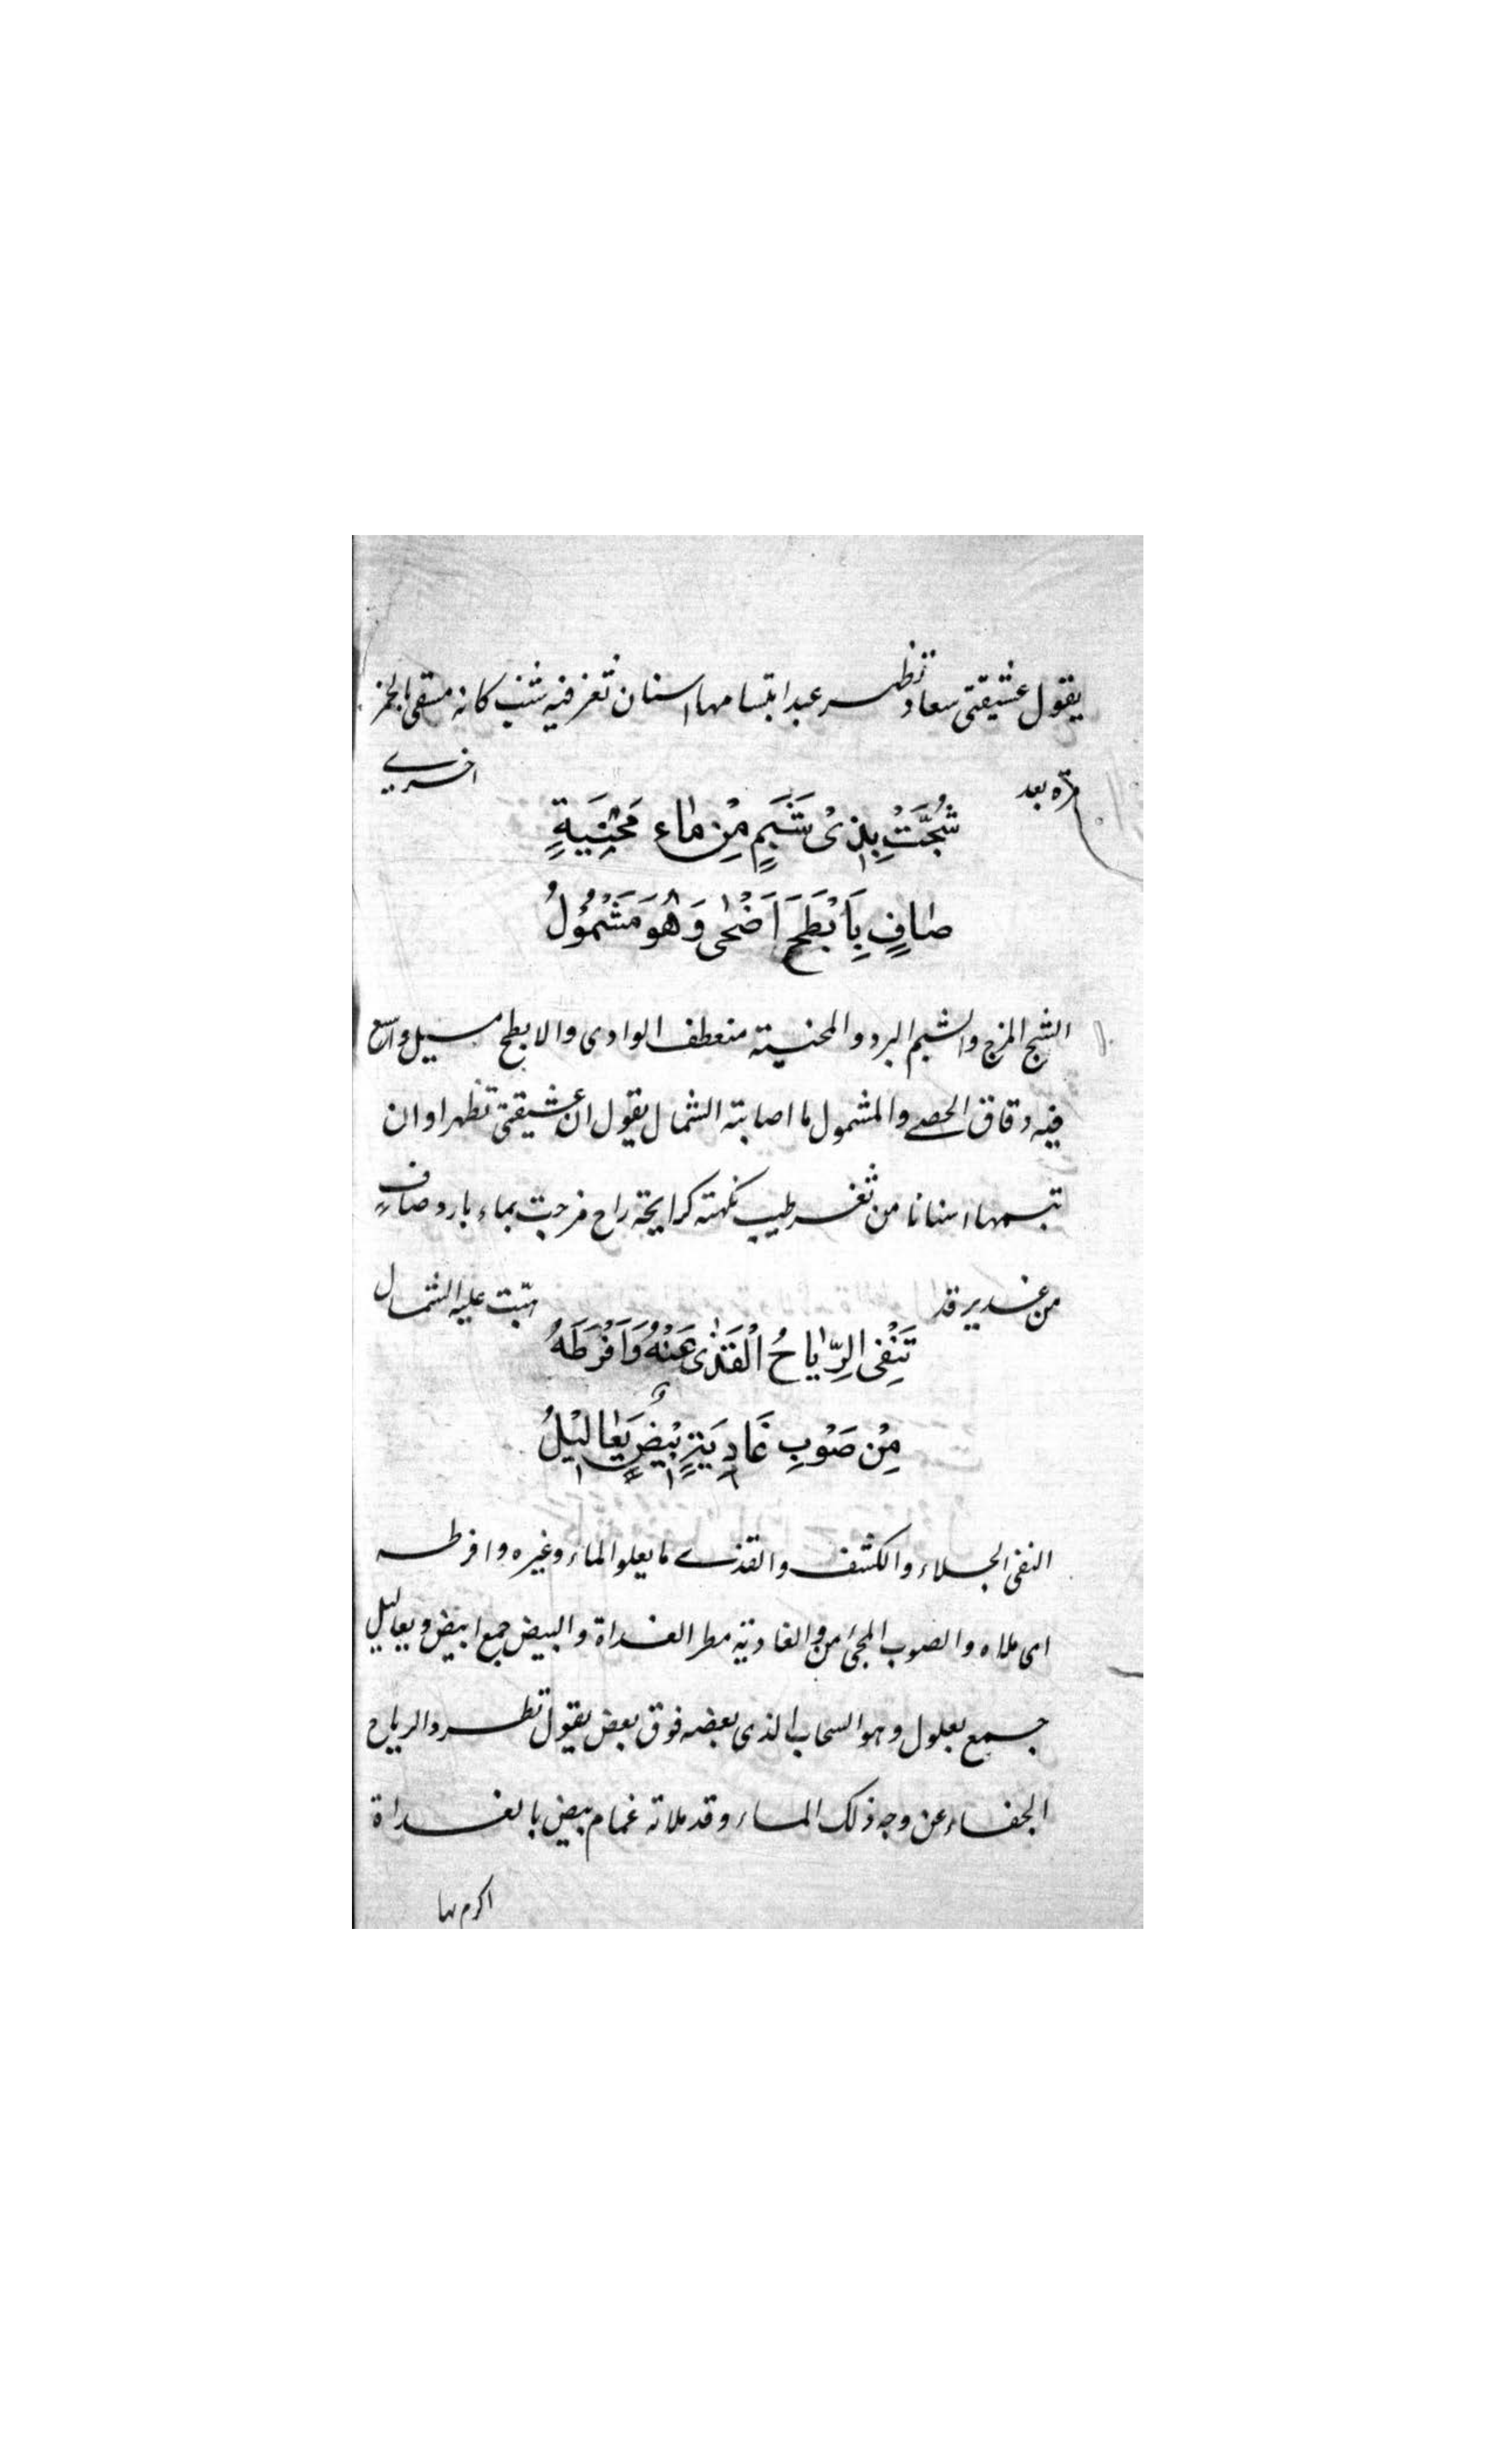 يقول عشيقتى سعاد تظهر عند ابتسامها اسنان ثغر فيه شنب كانه مسقى بالخمر
مرة بعد اخرے
شُجَّتْ بِذِىْ شَبَمٍ مِنْ مٰاءِ مَحْنِيَةٍ
صٰافٍ بِاَبْطَحَ اَضْحٰى وَهُوَ مَشْمُوْلُ
الشج المزج والشبم البرد والمحنيته منعطف الوادى والابطح مسيل واسع
فيه دقاق الحصے والمشمول ما اصابته الشمال يقول ان عشيقتى تظهر اوان
تبسمها اسنانا من ثغر طيب نكهته كرايحة راح مزجت بماء بارد صافٍ
من غدير قد هبّت عليه الشمال
تَنْفِى الرِّيٰاحُ الْقَذٰى عَنْهُ وَاَفْرَطَهُ
مِنْ صَوْبِ غَادِيَةٍ بْيْضٍ يَعٰالِيْلُ
النفى الجلاء والكشف والقذے ما يعلو الماء وغيره وافرطه
اى ملاه والصوب المجئ من والغادية مطر الغداة والبيض جمع ابيض ويعاليل
جمع يعلول وهو السحاب الذى بعضه فوق بعض يقول تطرد الرياح
الجفاء عن وجه ذلك الماء وقد ملاته غمام بيض بالغداة
اكرم بها